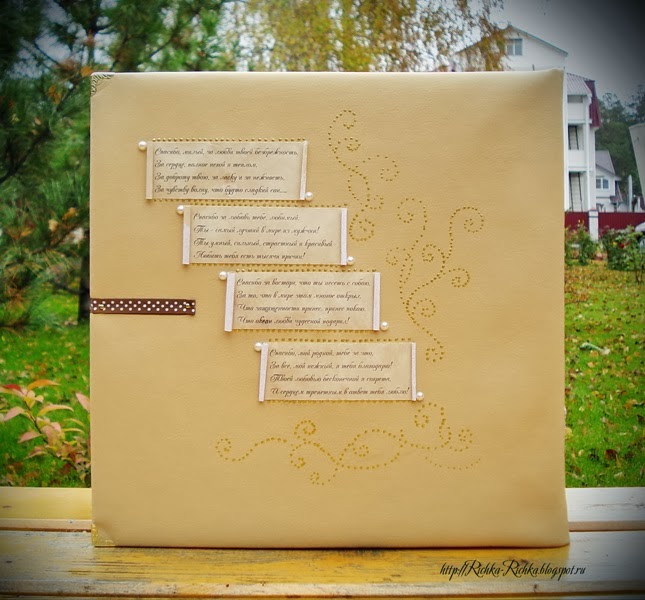 Спасибо, милый, за любви твоей безбрежность,
За сердце, полное огней и теплом,
За доброту твою, за ласку и за нежность,
За чувству волну, что будто сладкий сон....
Спасибо за любовь, тебе, любимый.
Ты - самый лучший в мире из мужчин!
Ты умный, сильный, страстный и красивый
Любить тебя есть тысячи причин!
Спасибо за восторг, что ты несешь с собою,
За то, что в мире этом многое открыл,
Что защищенность принес, принес покою,
Что обеим любви чудесной подарил!
Спасибо, мой родной, тебе за это,
За все, мой нежный, я тебя благодарю!
Твоей любовью бесконечной я согрета,
И сердцем трепетным в ответ тебя люблю!
http://Richka-Richka.blogspot.ru